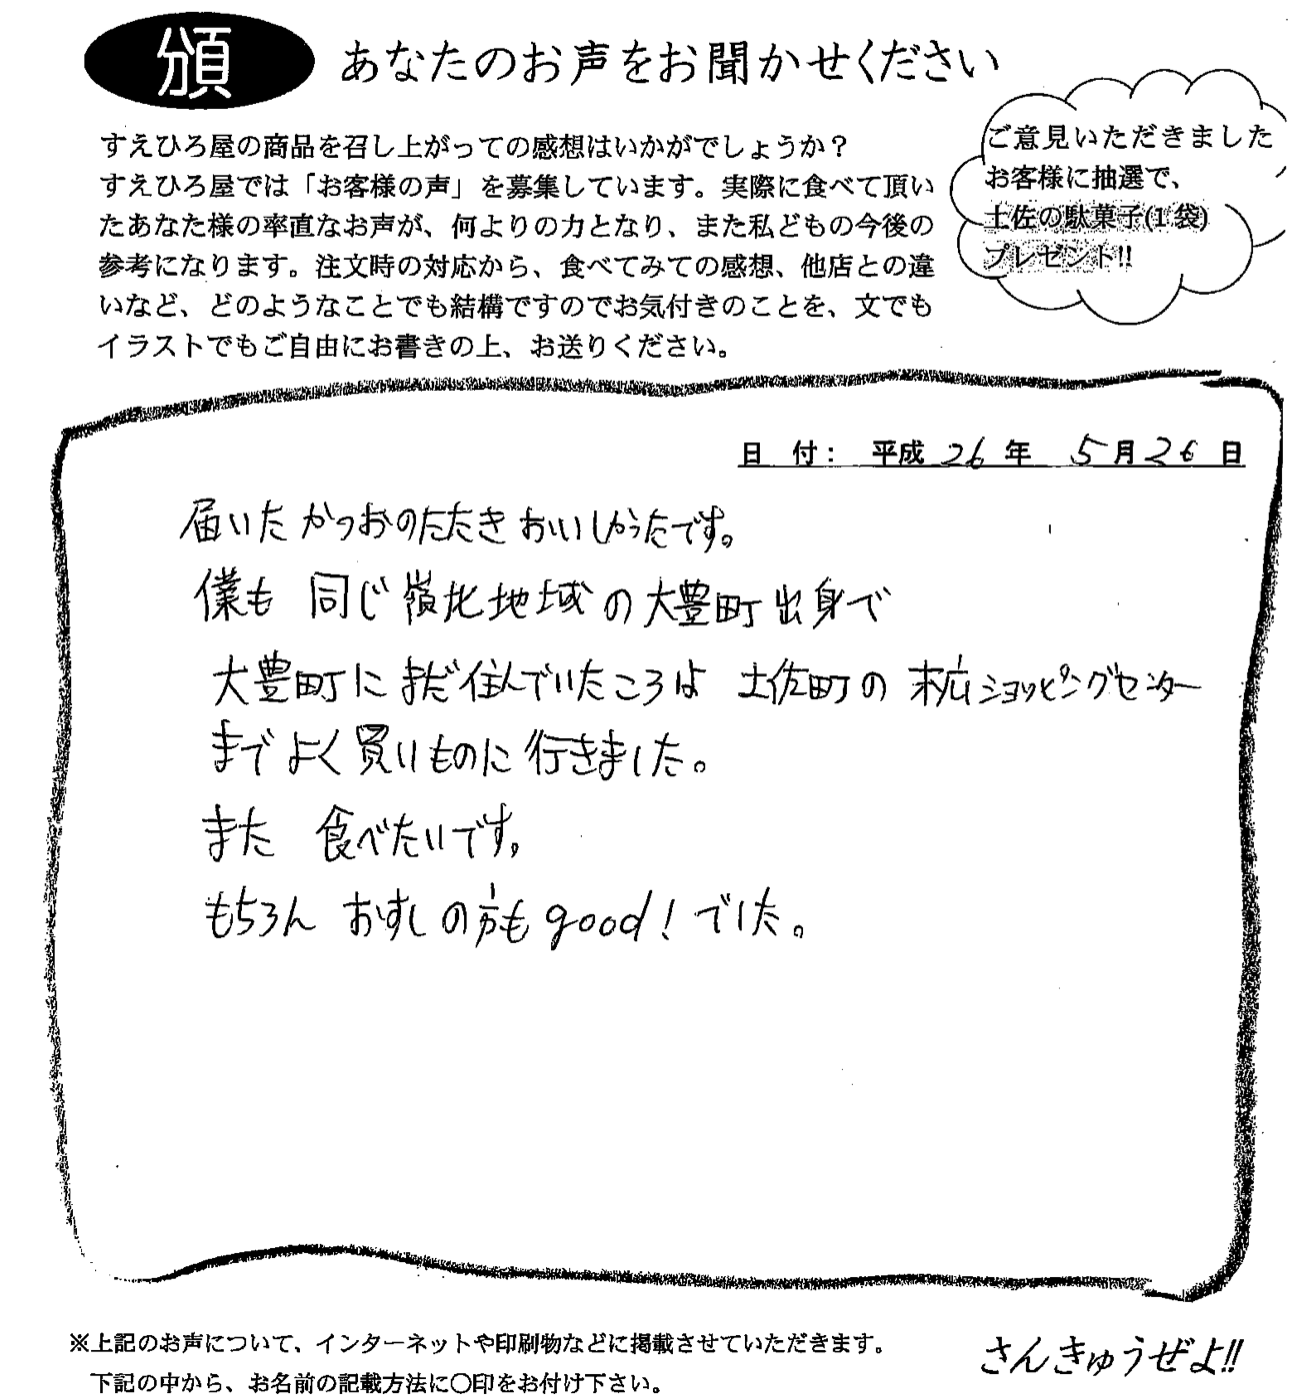 頒 あなたのお声をお聞かせください
すえひろ屋の商品を召し上がっての感想はいかがでしょうか？
すえひろ屋では「お客様の声」を募集しています。実際に食べて頂い
たあなた様の率直なお声が、何よりの力となり、また私どもの今後の
参考になります。注文時の対応から、食べてみての感想、他店との違
いなど、どのようなことでも結構ですのでお気付きのことを、文でも
イラストでもご自由にお書きの上、お送りください。
ご意見いただきました
お客様に抽選で、
土佐の駄菓子(1袋)
プレゼント!!
日 付： 平成 26 年 5 月 26 日
届いた かつおのたたき おいしかったです。
僕も 同じ 嶺北地域 の 大豊町 出身で
大豊町に まだ 住んでいた ころは 土佐町の 末広ショッピングセンター
まで よく 買いものに 行きました。
また 食べたいです。
もちろん おすしの方も good！でした。
※上記のお声について、インターネットや印刷物などに掲載させていただきます。
下記の中から、お名前の記載方法に〇印をお付け下さい。
さんきゅうぜよ!!